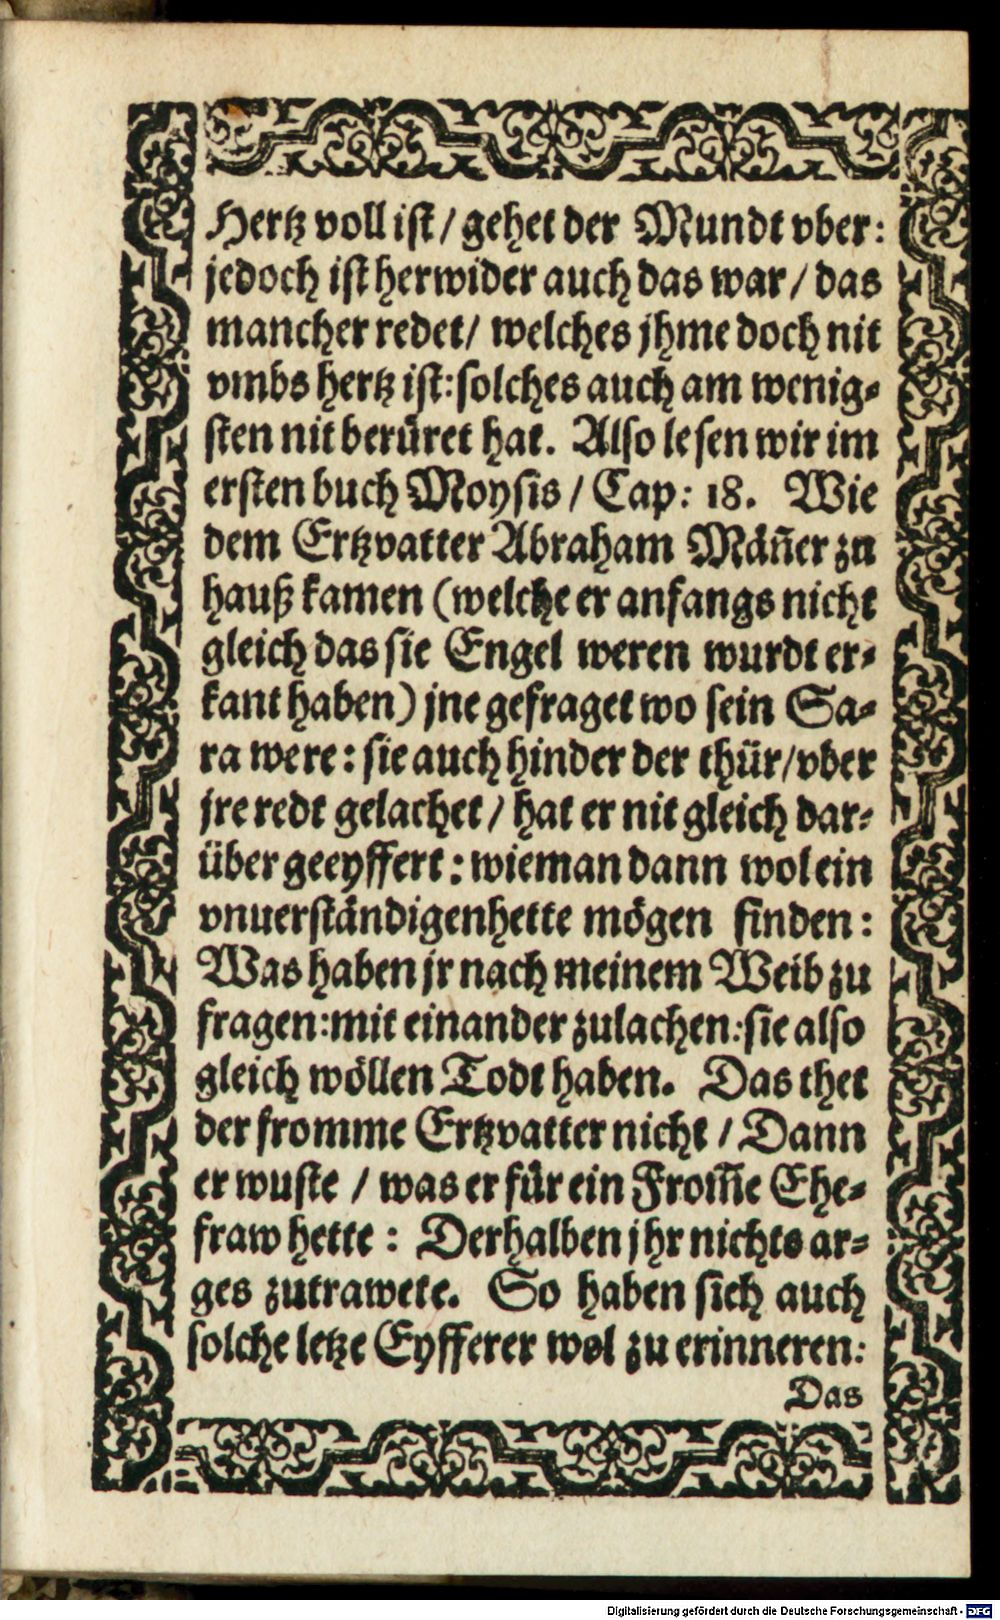 Hertz voll ist / gehet der Mundt vber:
jedoch ist herwider auch das war / das
mancher redet / welches jhme doch nit
vmbs hertz ist: solches auch am wenig⸗
sten nit berüret hat. Also lesen wir im
ersten buch Moysis / Cap: 18. Wie
dem Ertzvatter Abraham Mäñer zu
hauß kamen (welche er anfangs nicht
gleich das sie Engel weren wurdt er⸗
kant haben) jne gefraget wo sein Sa⸗
ra were: sie auch hinder der thür / vber
jre redt gelachet / hat er nit gleich dar⸗
über geeyffert: wie man dann wol ein
vnuerständigen hette mögen finden:
Was haben jr nach meinem Weib zu
fragen: mit einander zulachen: sie also
gleich wöllen Todt haben. Das thet
der fromme Ertzvatter nicht / Dann
er wuste / was er für ein From̃e Ehe⸗
fraw hette: Derhalben jhr nichts ar⸗
ges zutrawete. So haben sich auch
solche letze Eyfferer wol zu erinneren:
Das
Digitalisierung gefördert durch die Deutsche Forschungsgemeinschaft - DFG